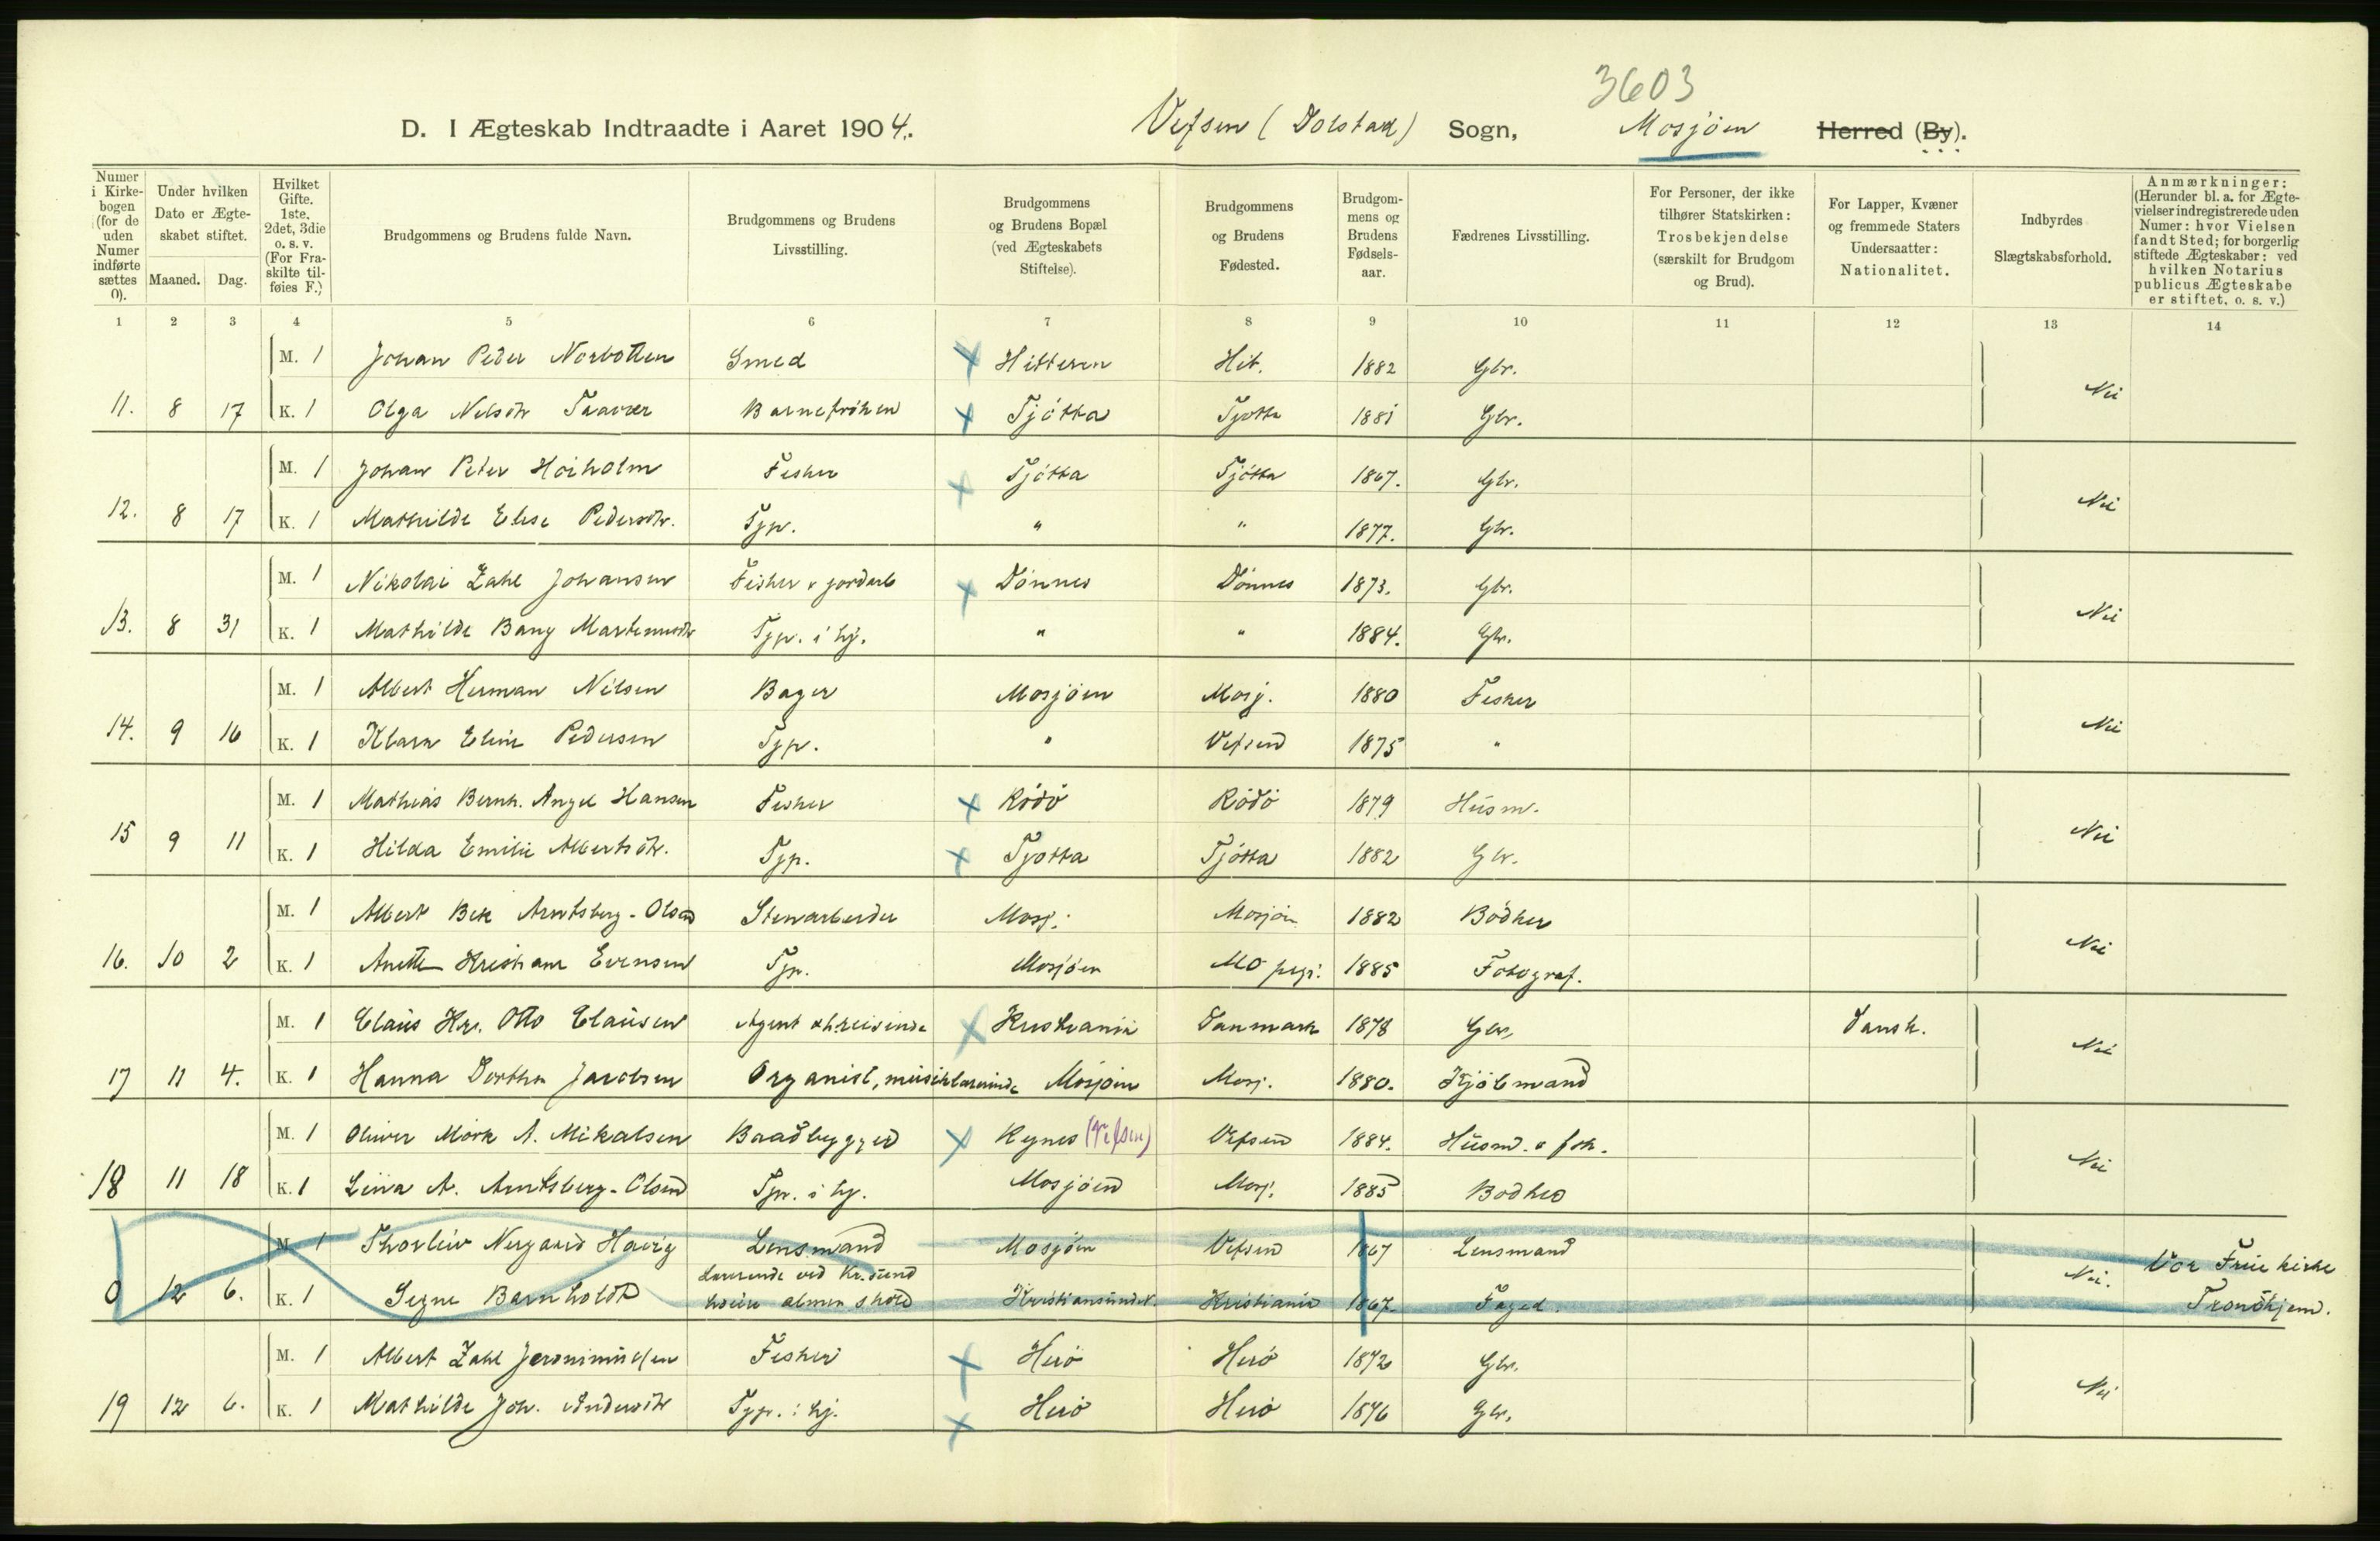 3603
D. I Ægteskab Indtraadte i Aaret 1904. Vefsen (Dolstad) Sogn, Mosjøen Herred (By).
Numer i Kirkebogen (for de uden Numer indførte sættes 0).
Under hvilken Dato er Ægteskabet stiftet.
Maaned. Dag.
Hvilket Gifte. 1ste, 2det, 3die o. s. v. (For Fraskilte tilføies F.)
Brudgommens og Brudens fulde Navn.
Brudgommens og Brudens Livsstilling.
Brudgommens og Brudens Bopæl (ved Ægteskabets Stiftelse).
Brudgommens og Brudens Fødested.
Brudgommens og Brudens Fødselsaar.
Fædrenes Livsstilling.
For Personer, der ikke tilhører Statskirken: Trosbekjendelse (særskilt for Brudgom og Brud).
For Lapper, Kvæner og fremmede Staters Undersaatter: Nationalitet.
Indbyrdes Slægtskabsforhold.
Anmærkninger: (Herunder bl. a. for Ægtevielser indregistrerede uden Numer: hvor Vielsen fandt Sted; for borgerlig stiftede Ægteskaber: ved hvilken Notarius publicus Ægteskabet er stiftet, o. s. v.)
1 2 3 4 5 6 7 8 9 10 11 12 13 14
M. 1 Johan Peder Norbotten Smed Hitteren Hit. 1882 Gbr.
11. 8 17 K. 1 Olga Nelsdtr Barnefrøken Tjøtta Tjotta 1881 Gbr. Nei
M. 1 Johan Peter Høiholm Fisker Tjøtta Tjøtta 1867. Gbr.
12. 8 17 K. 1 Mathilde Elise Pedersdtr. Tjp. " " 1877. Gbr. Nei
M. 1 Nikolai Zahl Johansen Fisker & jordarb Dønnes Dønnes 1873. Gbr.
13. 8 31 K. 1 Mathilde Bang Martinusdtr Tjp. i hj. " " 1884. Gbr. Nei
M. 1 Albert Herman Nilsen Bager Mosjøen Mosj. 1880 Fisker
14. 9 16 K. 1 Klara Eline Pedersen Tjp. " Vefsen 1875 " Nei
M. 1 Mathias Bernh. Angel Hansen Fisker Rødø Rødø 1879 Husm.
15 9 11 K. 1 Hilda Emilie Albertsdtr. Tjp. Tjotta Tjøtta 1882 Gbr. Nei
M. 1 Albert Bek Arntsberg-Olsen Stenarbeider Mosj. Mosjøen 1882 Bødker
16. 10 2 K. 1 Anette Kristiane Evensen Tjp. Mosjøen Mo prgj. 1885 Fotograf. Nei
M. 1 Claus Kr. Otto Clausen Agent Kristiania Danmark 1878 Gbr. Dansk.
17 11 4. K. 1 Hanna Dorthea Jacobsen Organist, musiklærerinde Mosjøen Mosj. 1880. Kjøbmand Nei
M. 1 Oliver Mørk A. Mikalsen Baadbygger Kynes (Vefsen) Vefsen 1884. Husm. & fsk.
18 11 18 K. 1 Lina A. Arntsberg-Olsen Tjp. i hj. Mosjøen Mosj. 1885 Bødker Nei
M 1 Thorleiv Nergaard Havig Lensmand Mosjøen Vefsen 1867 Lensmand Vor Frue kirke
0 12 6. K. 1 Signe Barnholdt Lærerinde ved Kr.sund høiere almen skole Kristiansund N. Kristiania 1867. Foged. Nei. Trondhjem.
M. 1 Albert Zahl Jeronimussen Fisker Herø Herø 1872 Gbr.
19 12 6. K. 1 Mathilde Joh. Andersdtr Tjp. i hj. Herø Herø 1876 Gbr. Nei